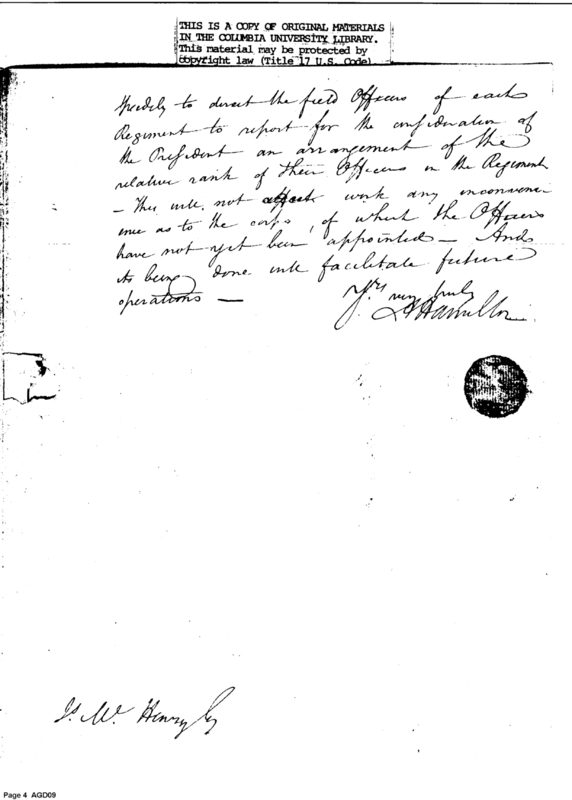 THIS IS A COPY OF ORIGINAL MATERIALS
IN THE COLUMBIA UNIVERSITY LIBRARY.
This material may be protected by
copyright law (Title 17 U.S. Code)
to direct the field Officers of each
Regiment to report for the consideration of
the President an arrangement of the
relative rank of their Officers in the Regiment
- This will not affect work any inconveni
ence as to the corps, of which the Officers
have not yet been appointed - And
its being done will facilitate future
operations -
Yrs very truly
A Hamilton
Js. Mc Henry Esq
Page 4 AGD09